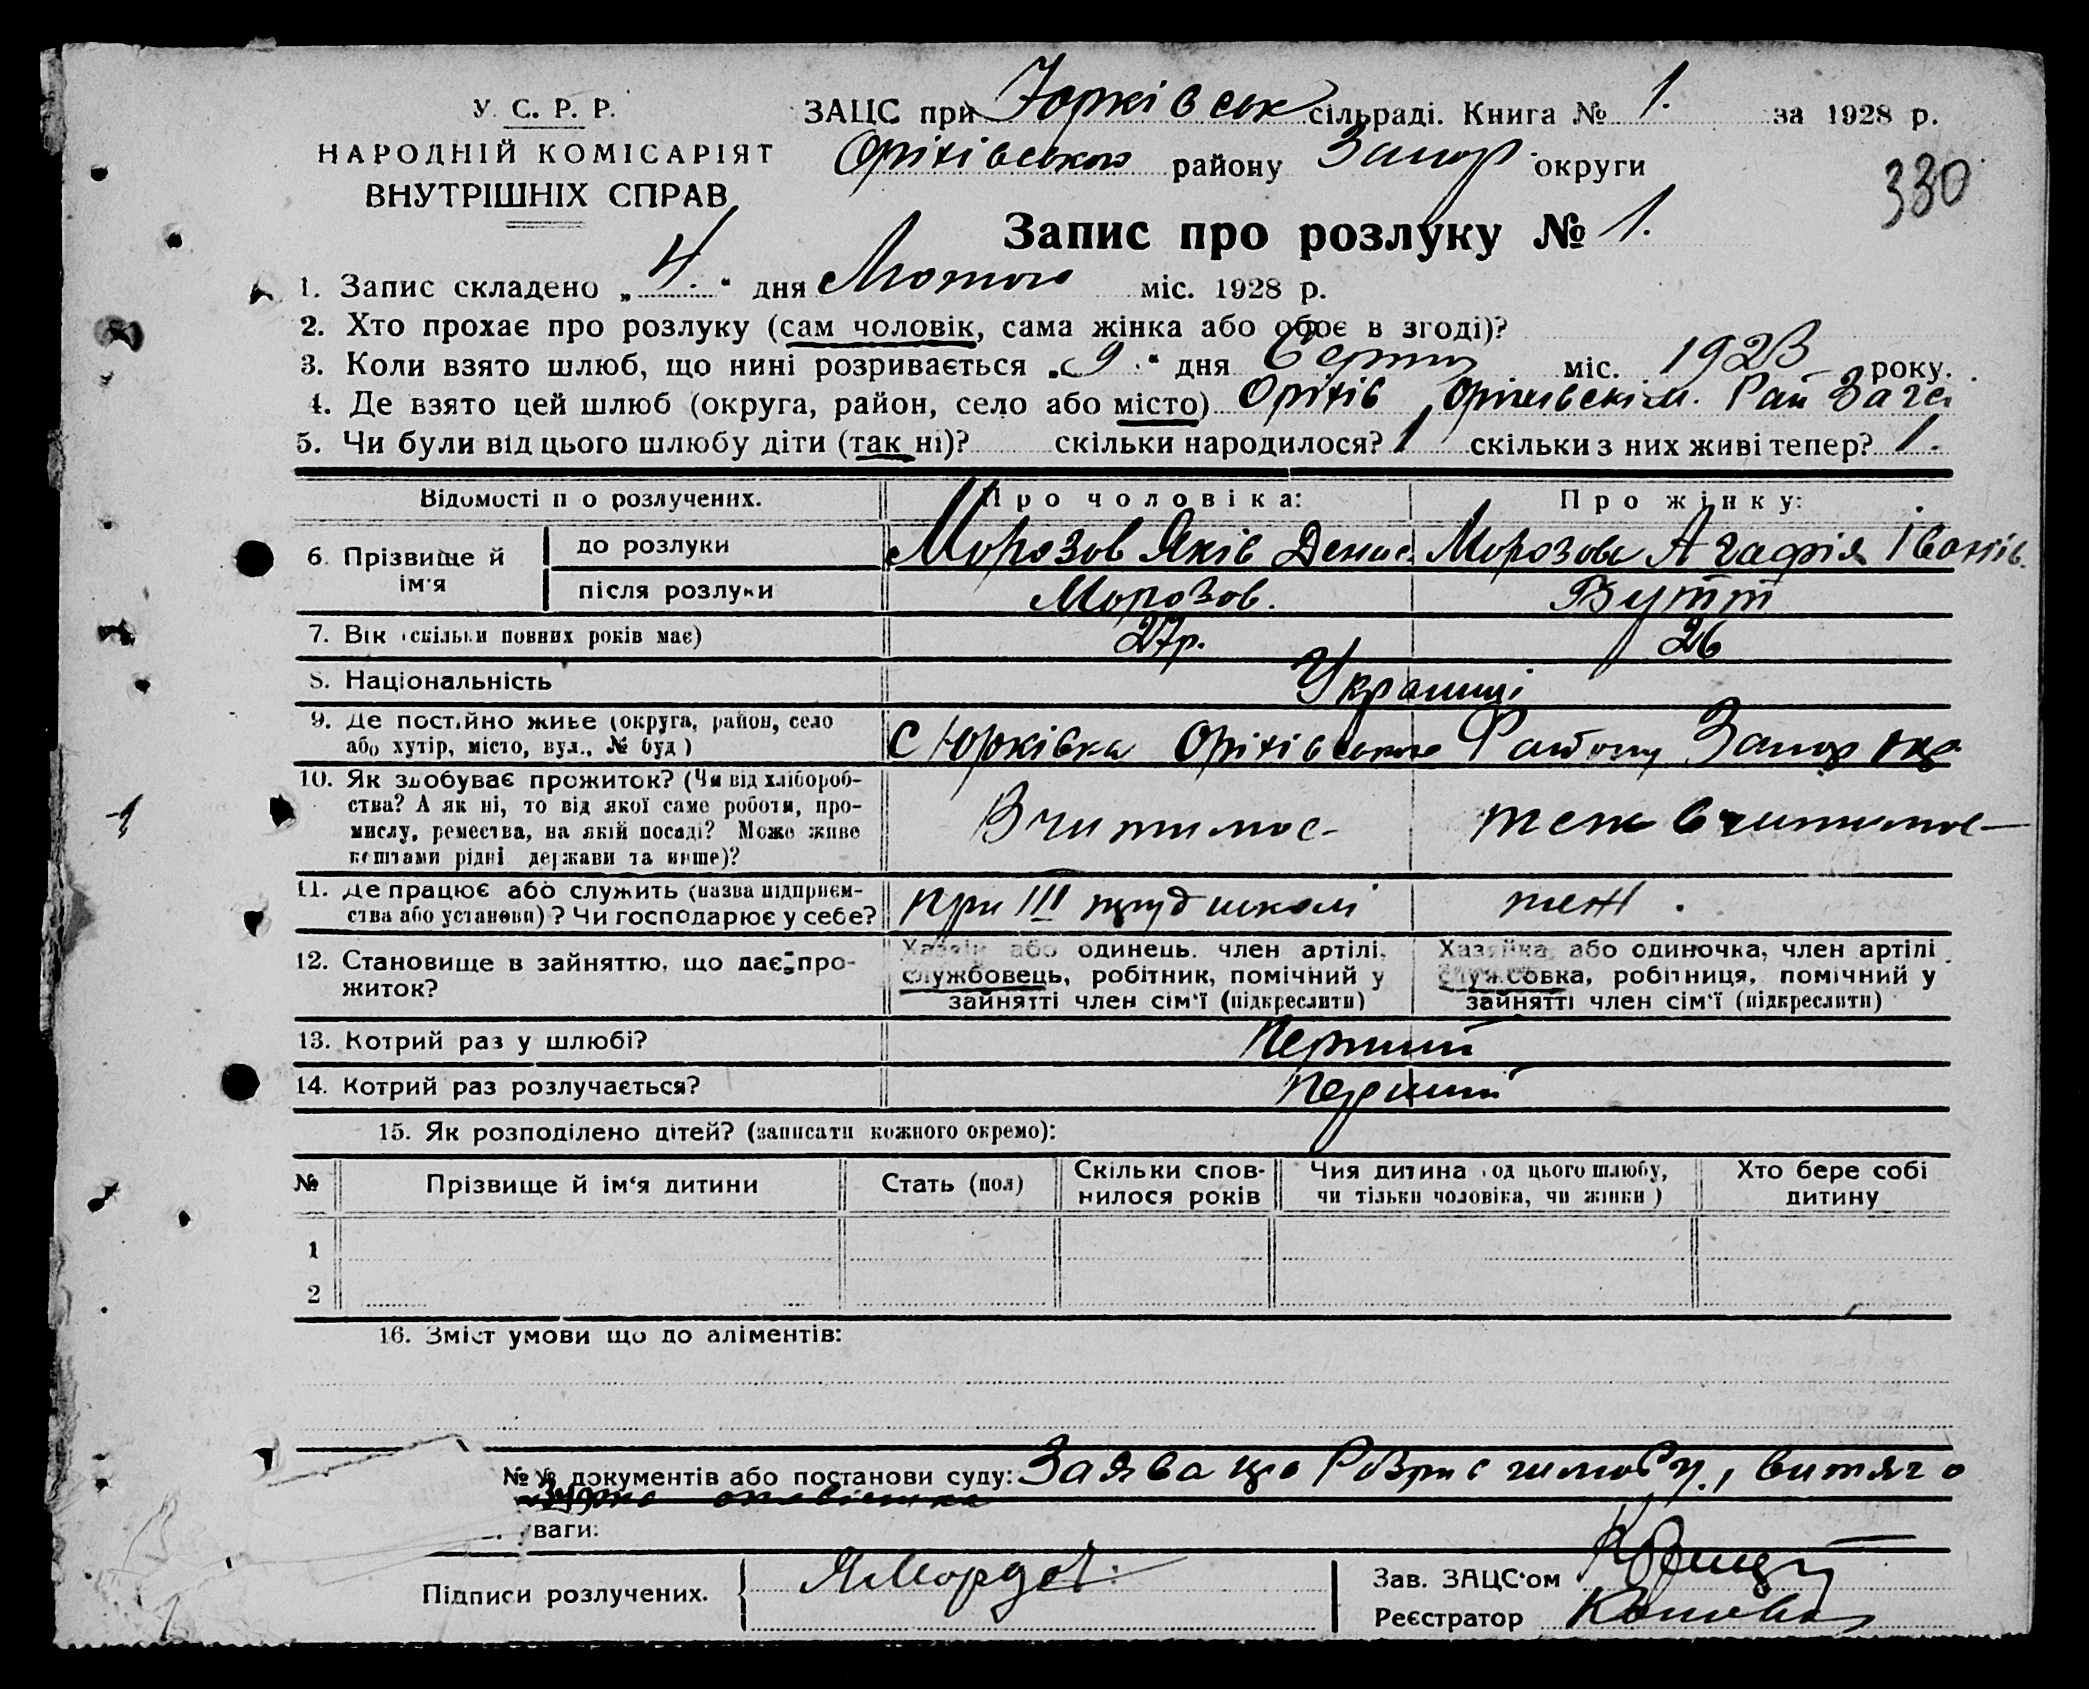 У. С. Р. Р.
НАРОДНІЙ КОМІСАРІЯТ
ВНУТРІШНІХ СПРАВ
ЗАЦС при Юрківськ сільраді. Книга № 1. за 1928 р.
Оріхівського району Запор. округи
330
Запис про розлуку № 1.
1. Запис складено „4.“ дня Лютого міс. 1928 р.
2. Хто прохає про розлуку (сам чоловік, сама жінка або обоє в згоді)?
3. Коли взято шлюб, що нині розривається „9.“ дня міс. 1923 року.
4. Де взято цей шлюб (округа, район, село або місто) Оріхів Рай
5. Чи були від цього шлюбу діти (так ні)? скільки народилося? 1 скільки з них живі тепер? 1.
Відомості п о розлучених. Про чоловіка: Про жінку:
6. Прізвище й ім'я до розлуки Морозов Яків Денис. Морозова Агафія Іванів.
після розлуки Морозов. Бутт
7. Вік (скільки повних років має) 27р. 26
8. Національність Українці
9. Де постійно живе (округа, район, село
або хутір, місто, вул., № буд) с Юрківка Оріхівського Району Запор окр
10. Як здобуває прожиток? (Чи від хлібороб-
ства? А як ні, то від якої саме роботи, про-
мислу, ремества, на якій посаді? Може живе
коштами рідні держави та инше)?
Вчителює теж вчителює
11. Де працює або служить (назва підприєм-
ства або установи)? Чи господарює у себе? при III труд школі теж.
12. Становище в зайняттю, що дає про-
житок?
Хазяїн або одинець, член артілі,
службовець, робітник, помічний у
зайнятті член сім'ї (підкреслити)
Хазяйка або одиночка, член артілі
служ.совка, робітниця, помічний у
зайнятті член сім'ї (підкреслити)
13. Котрий раз у шлюбі? Перший
14. Котрий раз розлучається? Перший
15. Як розподілено дітей? (записати кожного окремо):
№ Прізвище й ім'я дитини Стать (пол) Скільки спов-
нилося років Чия дитина (од цього шлюбу,
чи тільки чоловіка, чи жінки) Хто бере собі
дитину
1
2
16. Зміст умови що до аліментів:
№№ документів або постанови суду: Заява що
уваги:
Підписи розлучених.
Зав. ЗАЦС'ом
Реєстратор